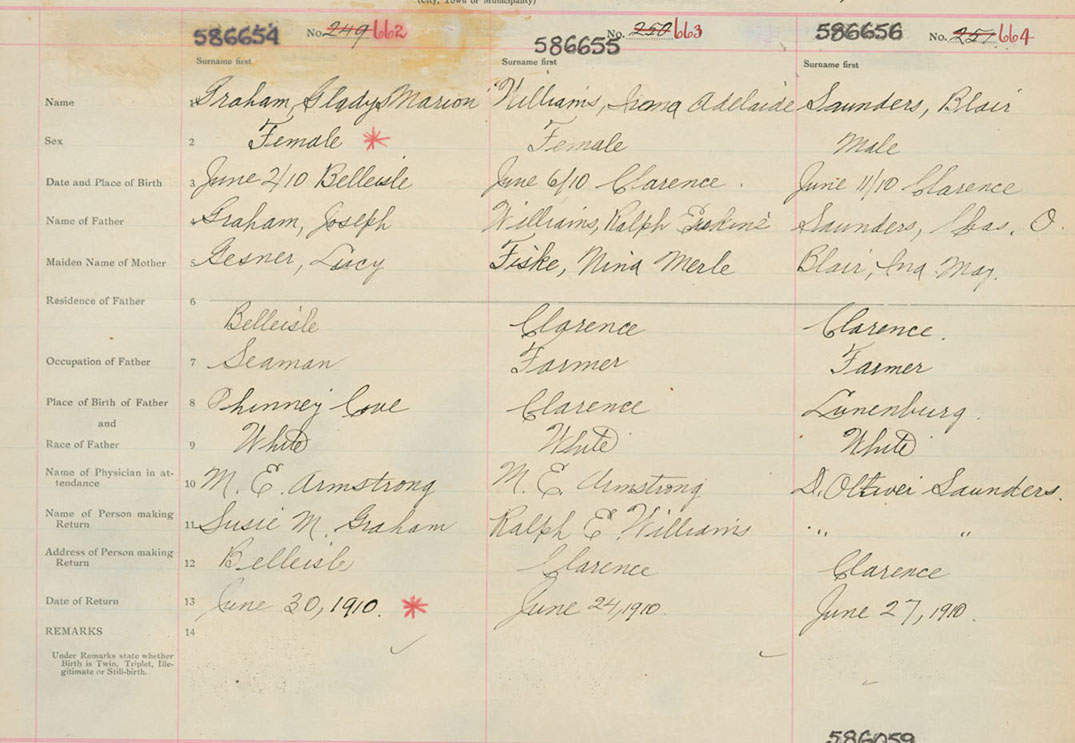 (City, Town or Municipality)
586654 No. 249 662 586655 No. 250 663 586656 No. 251 664
Surname first Surname first Surname first
Name 1 Graham, Gladys Marion Williams, Adelaide Saunders, Blair
Sex 2 Female * Female Male
Date and Place of Birth 3 June 2/10 Belleisle June 6/10 Clarence. June 11/10 Clarence
Name of Father 4 Graham, Joseph Williams, Ralph Erskine Saunders, Chas. O.
Maiden Name of Mother 5 Gesner, Lucy Fiske, Nina Merle Blair, Ina May.
Residence of Father 6
Belleisle Clarence Clarence.
Occupation of Father 7 Seaman Farmer Farmer
Place of Birth of Father 8 Phinney Cove Clarence Lunenburg.
and
Race of Father 9 White White White
Name of Physician in at-
tendance 10 M. E. Armstrong M. E. Armstrong Saunders.
Name of Person making
Return 11 Susie M. Graham Ralph E. Williams " "
Address of Person making
Return 12 Belleisle Clarence Clarence
Date of Return 13 June 30, 1910. * June 24, 1910. June 27, 1910.
REMARKS 14
Under Remarks state whether
Birth is Twin, Triplet, Ille-
gitimate or Still-birth.
586059